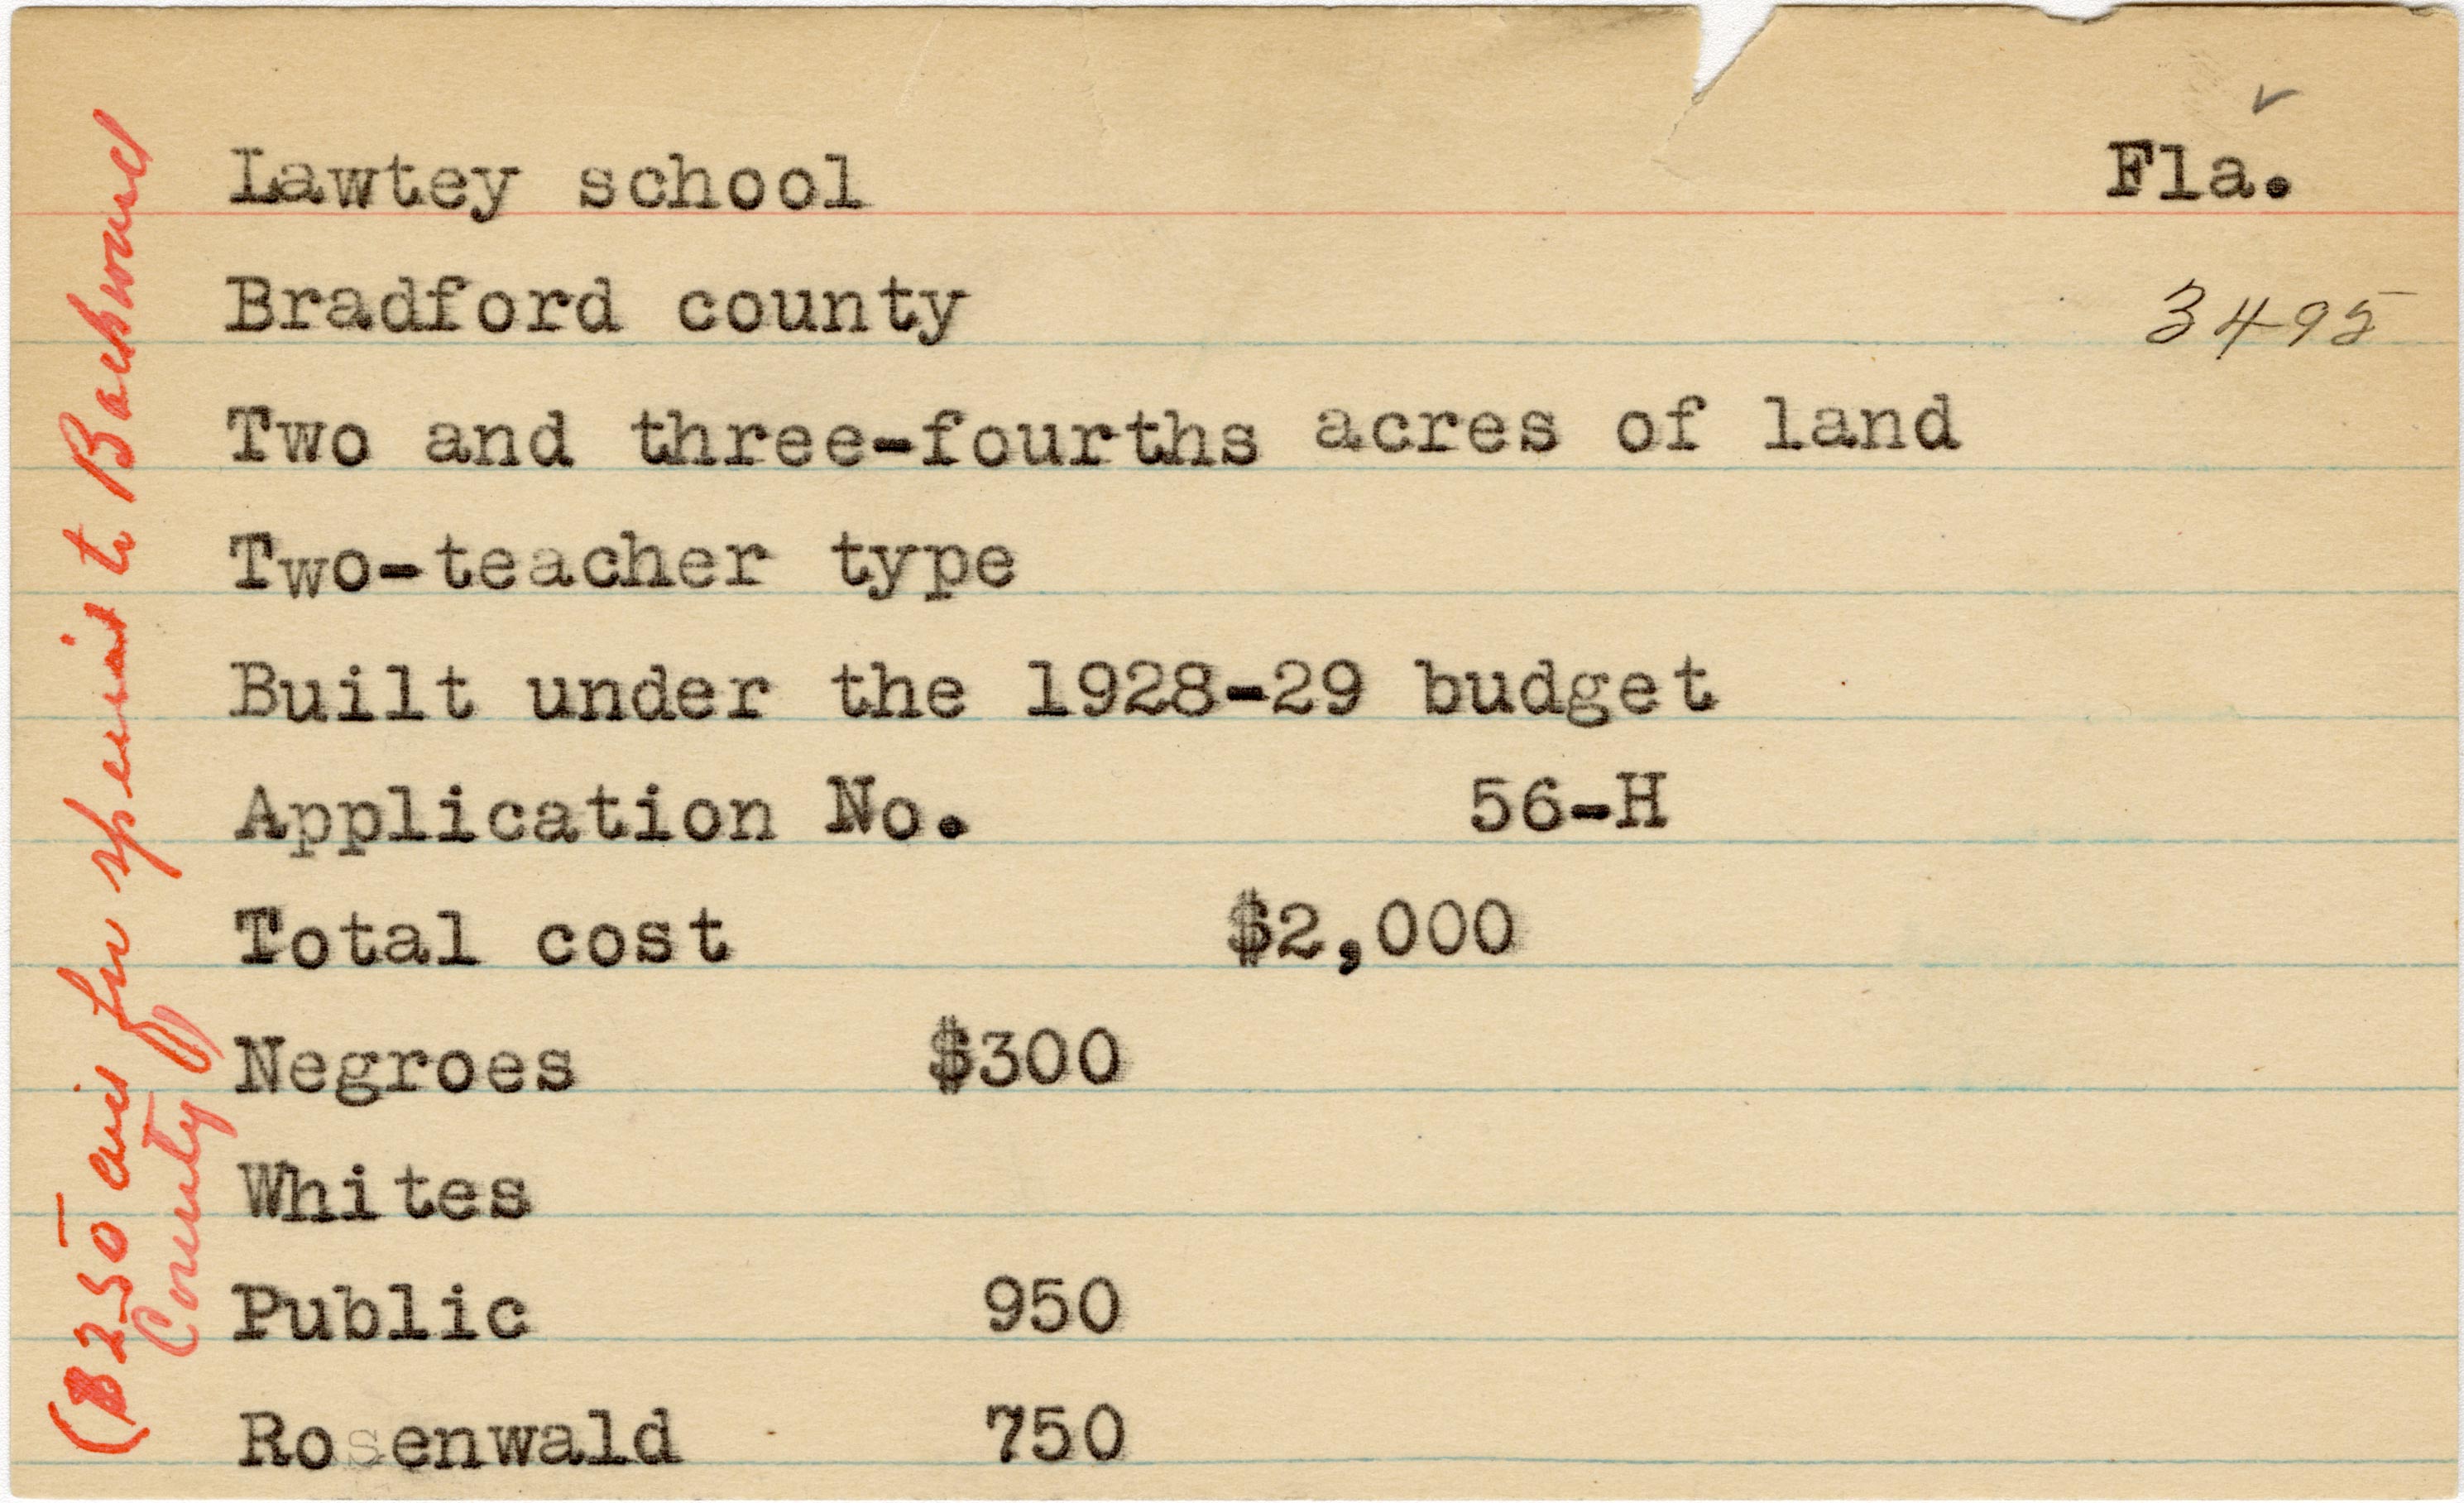 Lawtey school Fla.
Bradford county 3495
Two and three-fourths acres of land
Two-teacher type
Built under the 1928-29 budget
Application No. 56-H
Total cost $2,000
Negroes $300
Whites
Public 950
Rosenwald 750
($250 aid for specials to Backward
County)